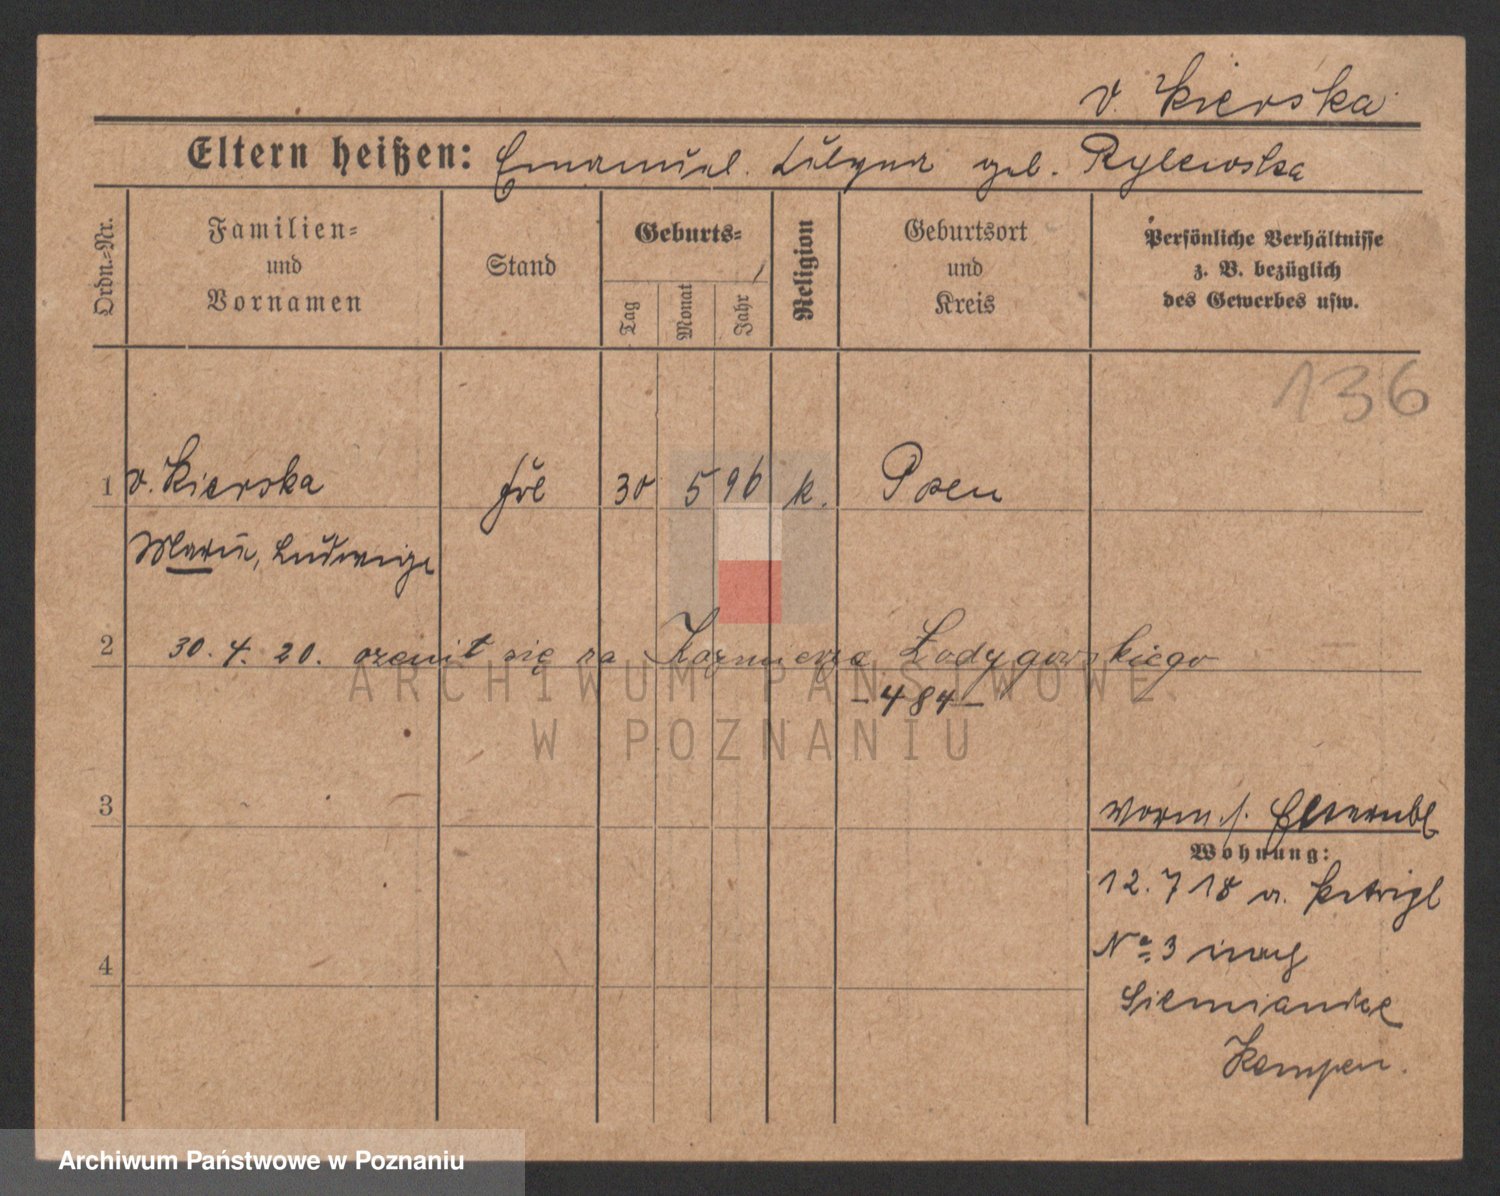 v. Kierska
Eltern heißen: Emanuel. geb. Rylewska
Ordn.-Nr.
Familien-
und
Vornamen
Stand
Geburts-
Tag
Monat
Jahr
Religion
Geburtsort
und
Kreis
Persönliche Verhältnisse
z. B. bezüglich
des Gewerbes usw.
136
1 v. Kierska Frl 30 5 96 k. Posen
Marie, Ludwiga
2 30. 4. 20. ożenił się za Kazmierza Łodygowskiego
- 484 -
ARCHIWUM PAŃSTWOWE
W POZNANIU
3
Wohnung:
12. 7 18 a.
No 3 nach
Siemianice
Kempen.
4
Archiwum Państwowe w Poznaniu